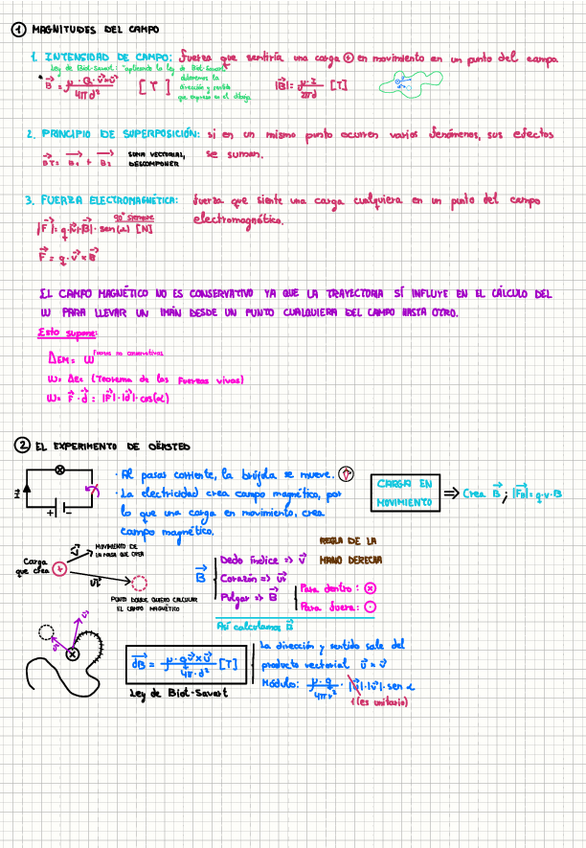 ① MAGNITUDES DEL CAMPO
1. INTENSIDAD DE CAMPO: fuerza que sentiría una carga ⊕ en movimiento en un punto del campo
Ley de Biot-Savart: "aplicando la ley de Biot-Savart
obtenemos la
dirección y sentido
B = μ·Q·v×u / 4πd² [T]
|B| = μ·I / 2πd [T]
2. PRINCIPIO DE SUPERPOSICIÓN: si en un mismo punto ocurren varios fenómenos, sus efectos
se suman.
BT = B₁ + B₂
SUMA VECTORIAL,
DESCOMPONER
3. FUERZA ELECTROMAGNÉTICA: fuerza que siente una carga cualquiera en un punto del campo
electromagnético.
90° siempre
|F| = q·|v|·|B|·sen(α) [N]
F = q·v×B
EL CAMPO MAGNÉTICO NO ES CONSERVATIVO YA QUE LA TRAYECTORIA SÍ INFLUYE EN EL CÁLCULO DEL
W PARA LLEVAR UN IMÁN DESDE UN PUNTO CUALQUIERA DEL CAMPO HASTA OTRO.
Esto supone:
ΔEM = W fuerzas no conservativas
W = ΔEc (Teorema de las Fuerzas vivas)
W = F·d = |F|·|d|·cos(α)
② EL EXPERIMENTO DE OËRSTED
· Al pasar corriente, la brújula se mueve.
· La electricidad crea campo magnético, por
lo que una carga en movimiento, crea
campo magnético.
I
+ -
CARGA EN
MOVIMIENTO
⇒ Crea B ; |FB| = q·v·B
REGLA DE LA
MANO DERECHA
v
MOVIMIENTO DE
LA MASA QUE CREA
Carga
que crea
+
PUNTO DONDE QUIERO CALCULAR
EL CAMPO MAGNÉTICO
B
Dedo índice => v
Corazón => ur
Pulgar => B
Para dentro: ⊗
Para fuera: ⊙
Así calculamos B
dB = μ·q·v×u / 4π·d² [T]
Ley de Biot-Savart
La dirección y sentido sale del
producto vectorial u × v
Módulo: μ·q / 4πr² · |u|·|v|·sen α
1 (es unitario)